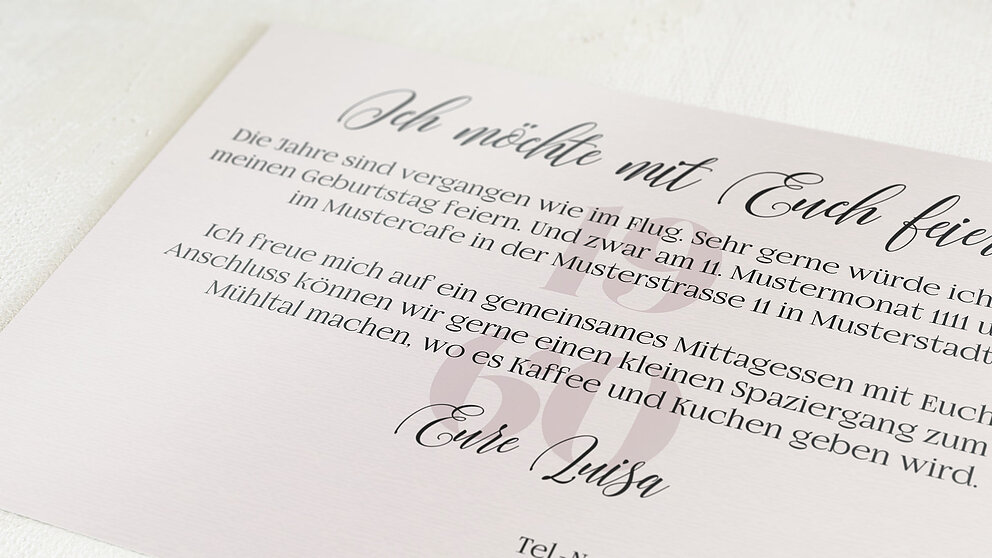 Ich möchte mit Euch feier
Die Jahre sind vergangen wie im Flug. Sehr gerne würde ich
meinen Geburtstag feiern. Und zwar am 11. Mustermonat 1111 u
im Mustercafe in der Musterstrasse 11 in Musterstadt
19
60
Ich freue mich auf ein gemeinsames Mittagessen mit Euch
Anschluss können wir gerne einen kleinen Spaziergang zum
Mühltal machen, wo es Kaffee und Kuchen geben wird.
Eure Luisa
Tel.-N